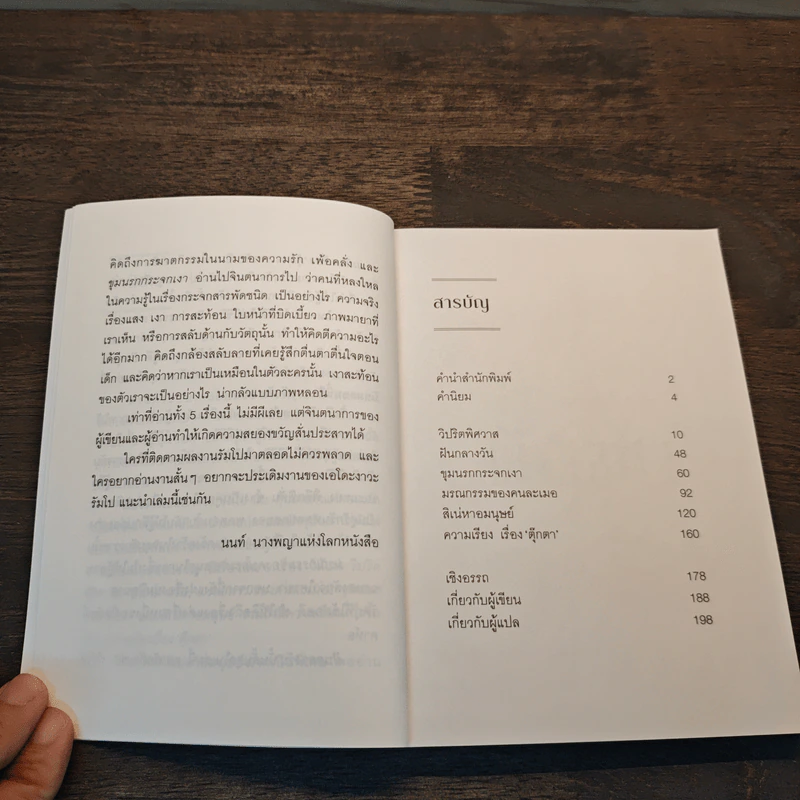 คิดถึงการฆาตกรรมในนามของความรัก เพ้อคลั่ง และ
ขุมนรกกระจกเงา อ่านไปจินตนาการไป ว่าคนที่หลงใหล
ในความรู้ในเรื่องกระจกสารพัดชนิด เป็นอย่างไร ความจริง
เรื่องแสง เงา การสะท้อน ใบหน้าที่บิดเบี้ยว ภาพมายาที่
เราเห็น หรือการสลับด้านกับวัตถุนั้น ทำให้คิดตีความอะไร
ได้อีกมาก คิดถึงกล้องสลับลายที่เคยรู้สึกตื่นตาตื่นใจตอน
เด็ก และคิดว่าหากเราเป็นเหมือนในตัวละครนั้น เงาสะท้อน
ของตัวเราจะเป็นอย่างไร น่ากลัวแบบภาพหลอน
เท่าที่อ่านทั้ง 5 เรื่องนี้ ไม่มีผีเลย แต่จินตนาการของ
ผู้เขียนและผู้อ่านทำให้เกิดความสยองขวัญสั่นประสาทได้
ใครที่ติดตามผลงานรัมโปมาตลอดไม่ควรพลาด และ
ใครอยากอ่านงานสั้นๆ อยากจะประเดิมงานของเอโดะงาวะ
รัมโป แนะนำเล่มนี้เช่นกัน
นนท์ นางพญาแห่งโลกหนังสือ
สารบัญ
คำนำสำนักพิมพ์ 2
คำนิยม 4
วิปริตพิศวาส 10
ฝันกลางวัน 48
ขุมนรกกระจกเงา 60
มรณกรรมของคนละเมอ 92
สิเน่หาอมนุษย์ 120
ความเรียง เรื่อง 'ตุ๊กตา' 160
เชิงอรรถ 178
เกี่ยวกับผู้เขียน 188
เกี่ยวกับผู้แปล 198